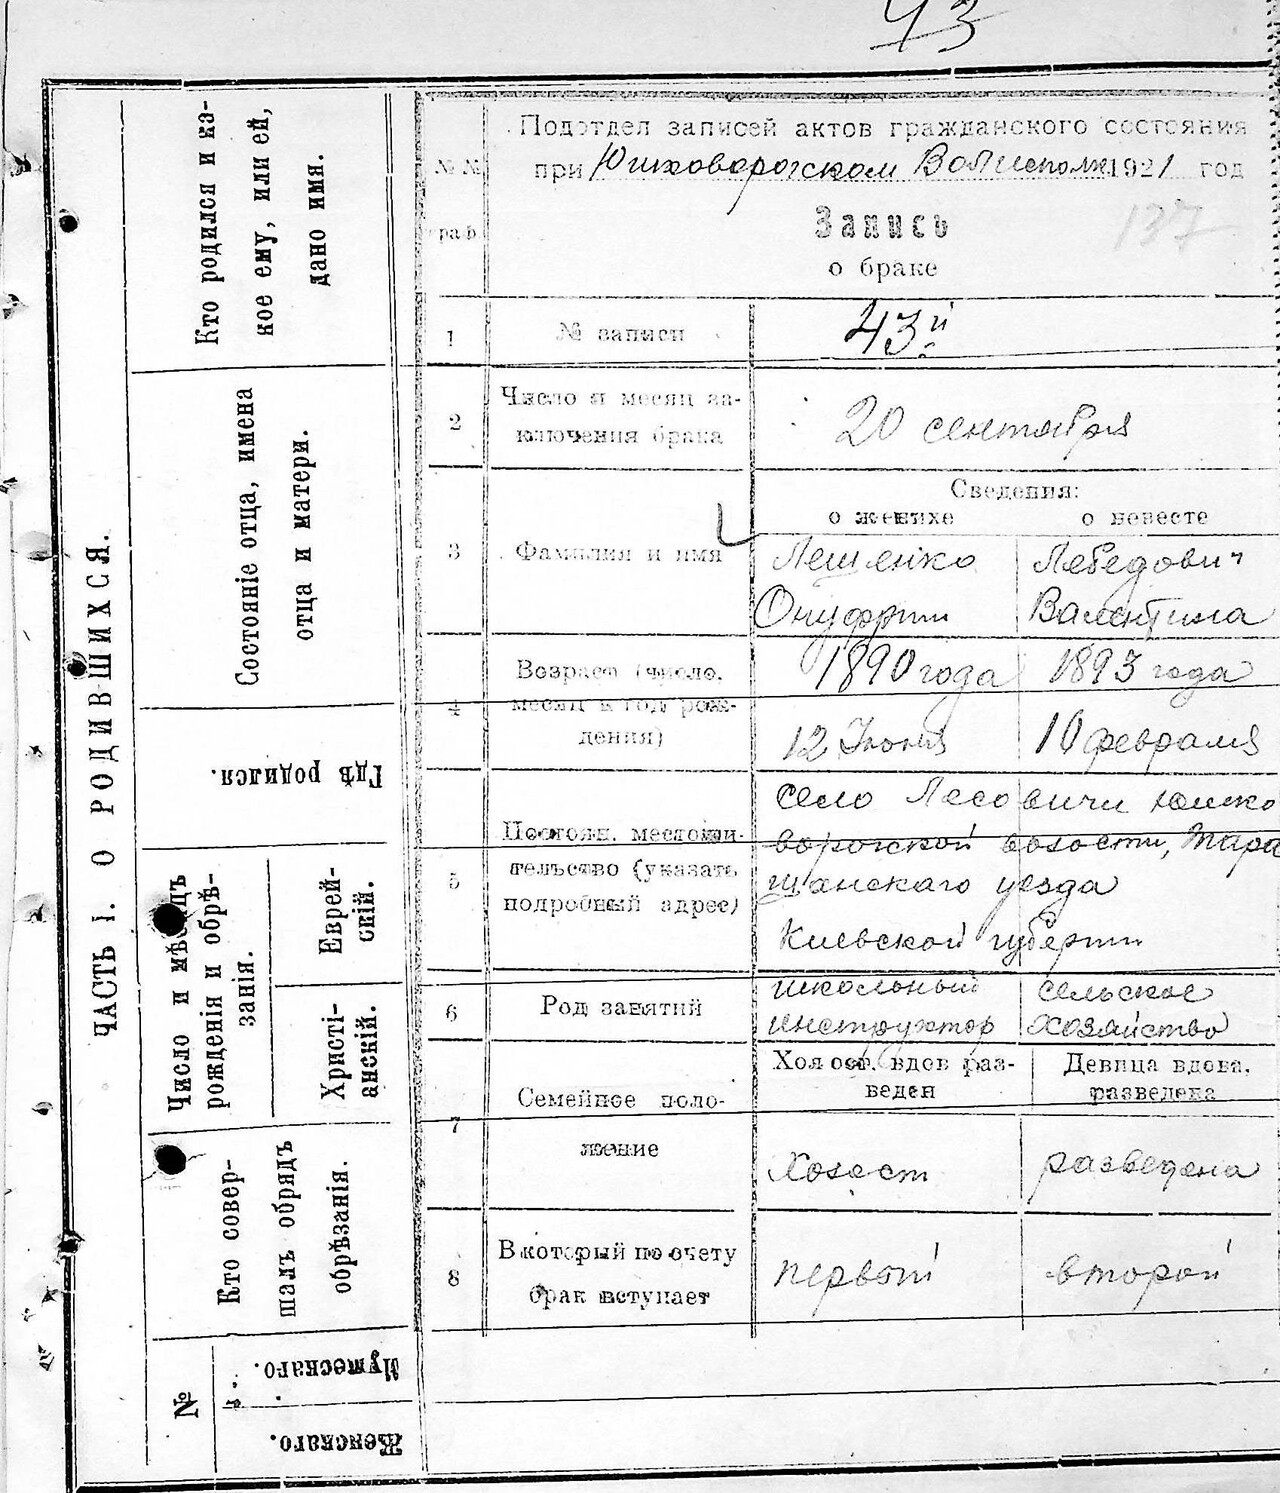 43
Подотдел записей актов гражданского состояния
при Юшковорогском Волисполк 1921 год
№ №
граф
Запись
137
о браке
1 № записи 43й
2 Число и месяц за-
ключения брака
20 сентября
Сведения:
о женихе о невесте
3 Фамилия и имя
Лещенко Лебедович
Онуфрий Валентина
4 Возраст (число,
месяц и год рож-
дения)
1890 года 1893 года
12 Июня 10 февраля
5 Постоян. местожи-
тельство (указать
подробный адрес)
село Лесовичи Юшко
ворогской волости, Тара
щанскаго уезда
Киевской губернии
6 Род занятий
школьный сельское
инструктор хозяйство
7 Семейное поло-
жение
Холост. вдов раз-
веден
Девица вдова,
разведена
Холост разведена
8 В который по счету
брак вступает
первый второй
ЧАСТЬ I. О РОДИВШИХСЯ.
Кто родился и ка-
кое ему, или ей,
дано имя.
Состояніе отца, имена
отца и матери.
Гдѣ родился.
Число и мѣсяцъ
рожденія и обрѣ-
занія.
Еврей-
скій.
Христі-
анскій.
Кто совер-
шалъ обрядъ
обрѣзанія.
№
Мужескаго.
Женскаго.